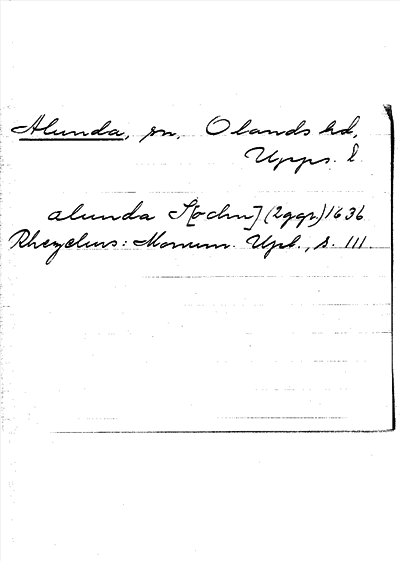 Alunda, sn, Olands hd,
Upps. l
alunda S[ochn] (2ggr) 1636
Rhezelius: Monum. Upl., s. 111.